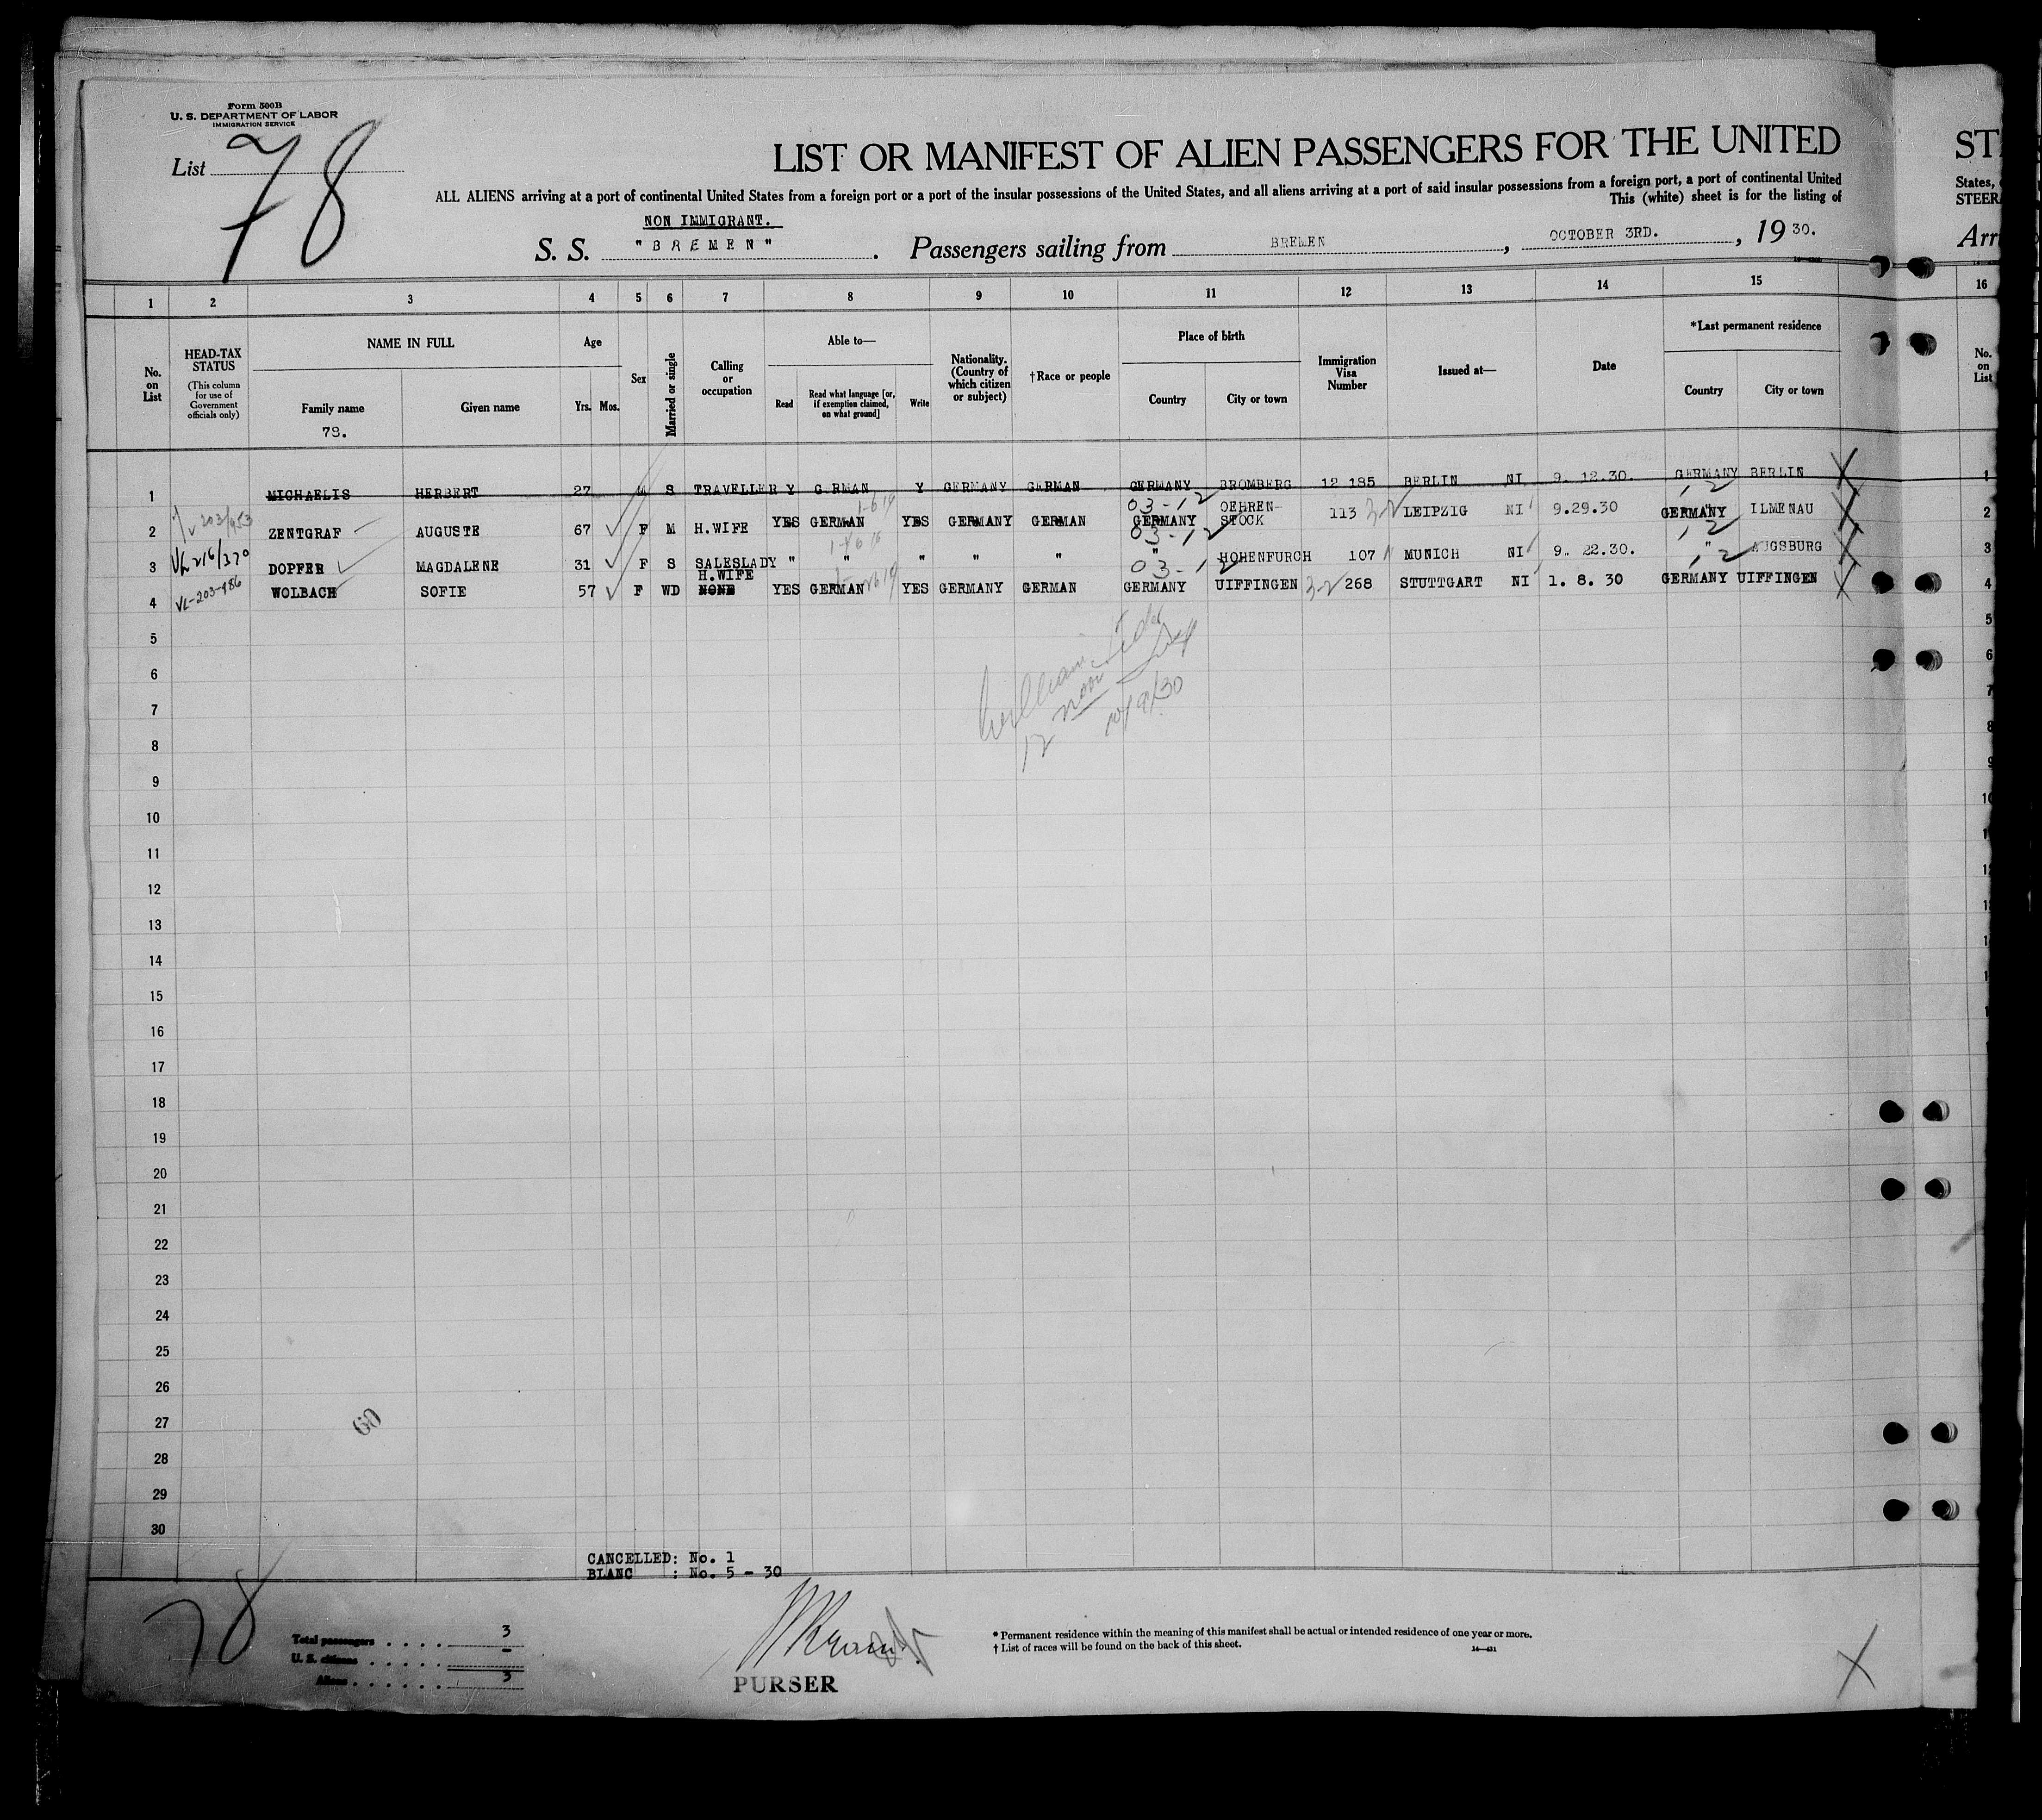 Form 500B
U. S. DEPARTMENT OF LABOR
IMMIGRATION SERVICE
List 78
LIST OR MANIFEST OF ALIEN PASSENGERS FOR THE UNITED
ALL ALIENS arriving at a port of continental United States from a foreign port or a port of the insular possessions of the United States, and all aliens arriving at a port of said insular possessions from a foreign port, a port of continental United
This (white) sheet is for the listing of
NON IMMIGRANT.
S. S. "BREMEN". Passengers sailing from BREMEN, OCTOBER 3RD., 1930.
States,
STEER
Arr
1 2 3 4 5 6 7 8 9 10 11 12 13 14 15 16
No. on List
HEAD-TAX STATUS
(This column for use of Government officials only)
NAME IN FULL
Family name
Given name
78.
Age
Yrs. Mos.
Sex
Married or single
Calling or occupation
Able to—
Read
Read what language [or, if exemption claimed, on what ground]
Write
Nationality. (Country of which citizen or subject)
†Race or people
Place of birth
Country
City or town
Immigration Visa Number
Issued at—
Date
*Last permanent residence
Country
City or town
No. on List
1 MICHAELIS HERBERT 27 M S TRAVELLER Y GERMAN Y GERMANY GERMAN GERMANY BROMBERG 12 185 BERLIN NI 9. 12.30. GERMANY BERLIN 1
2 203/953 ZENTGRAF AUGUSTE 67 F M H.WIFE YES GERMAN YES GERMANY GERMAN 03-12 GERMANY OEHREN-STOCK 113 3-2 LEIPZIG NI 9.29.30 GERMANY ILMENAU 2
3 VL 216/370 DOPFER MAGDALENE 31 F S SALESLADY " " " " " 03-12 " HOHENFURCH 107 MUNICH NI 9. 22.30. " AUGSBURG 3
4 VL-203-986 WOLBACH SOFIE 57 F WD H.WIFE NONE YES GERMAN YES GERMANY GERMAN 03-12 GERMANY UIFFINGEN 3-2 268 STUTTGART NI 1. 8. 30 GERMANY UIFFINGEN 4
William
12 noon
10/9/30
5
6
7
8
9
10
11
12
13
14
15
16
17
18
19
20
21
22
23
24
25
26
27
28
29
30
60
CANCELLED: No. 1
BLANC : No. 5 - 30
78
Total passengers 3
U. S. citizens -
Aliens 3
PURSER
* Permanent residence within the meaning of this manifest shall be actual or intended residence of one year or more.
† List of races will be found on the back of this sheet.